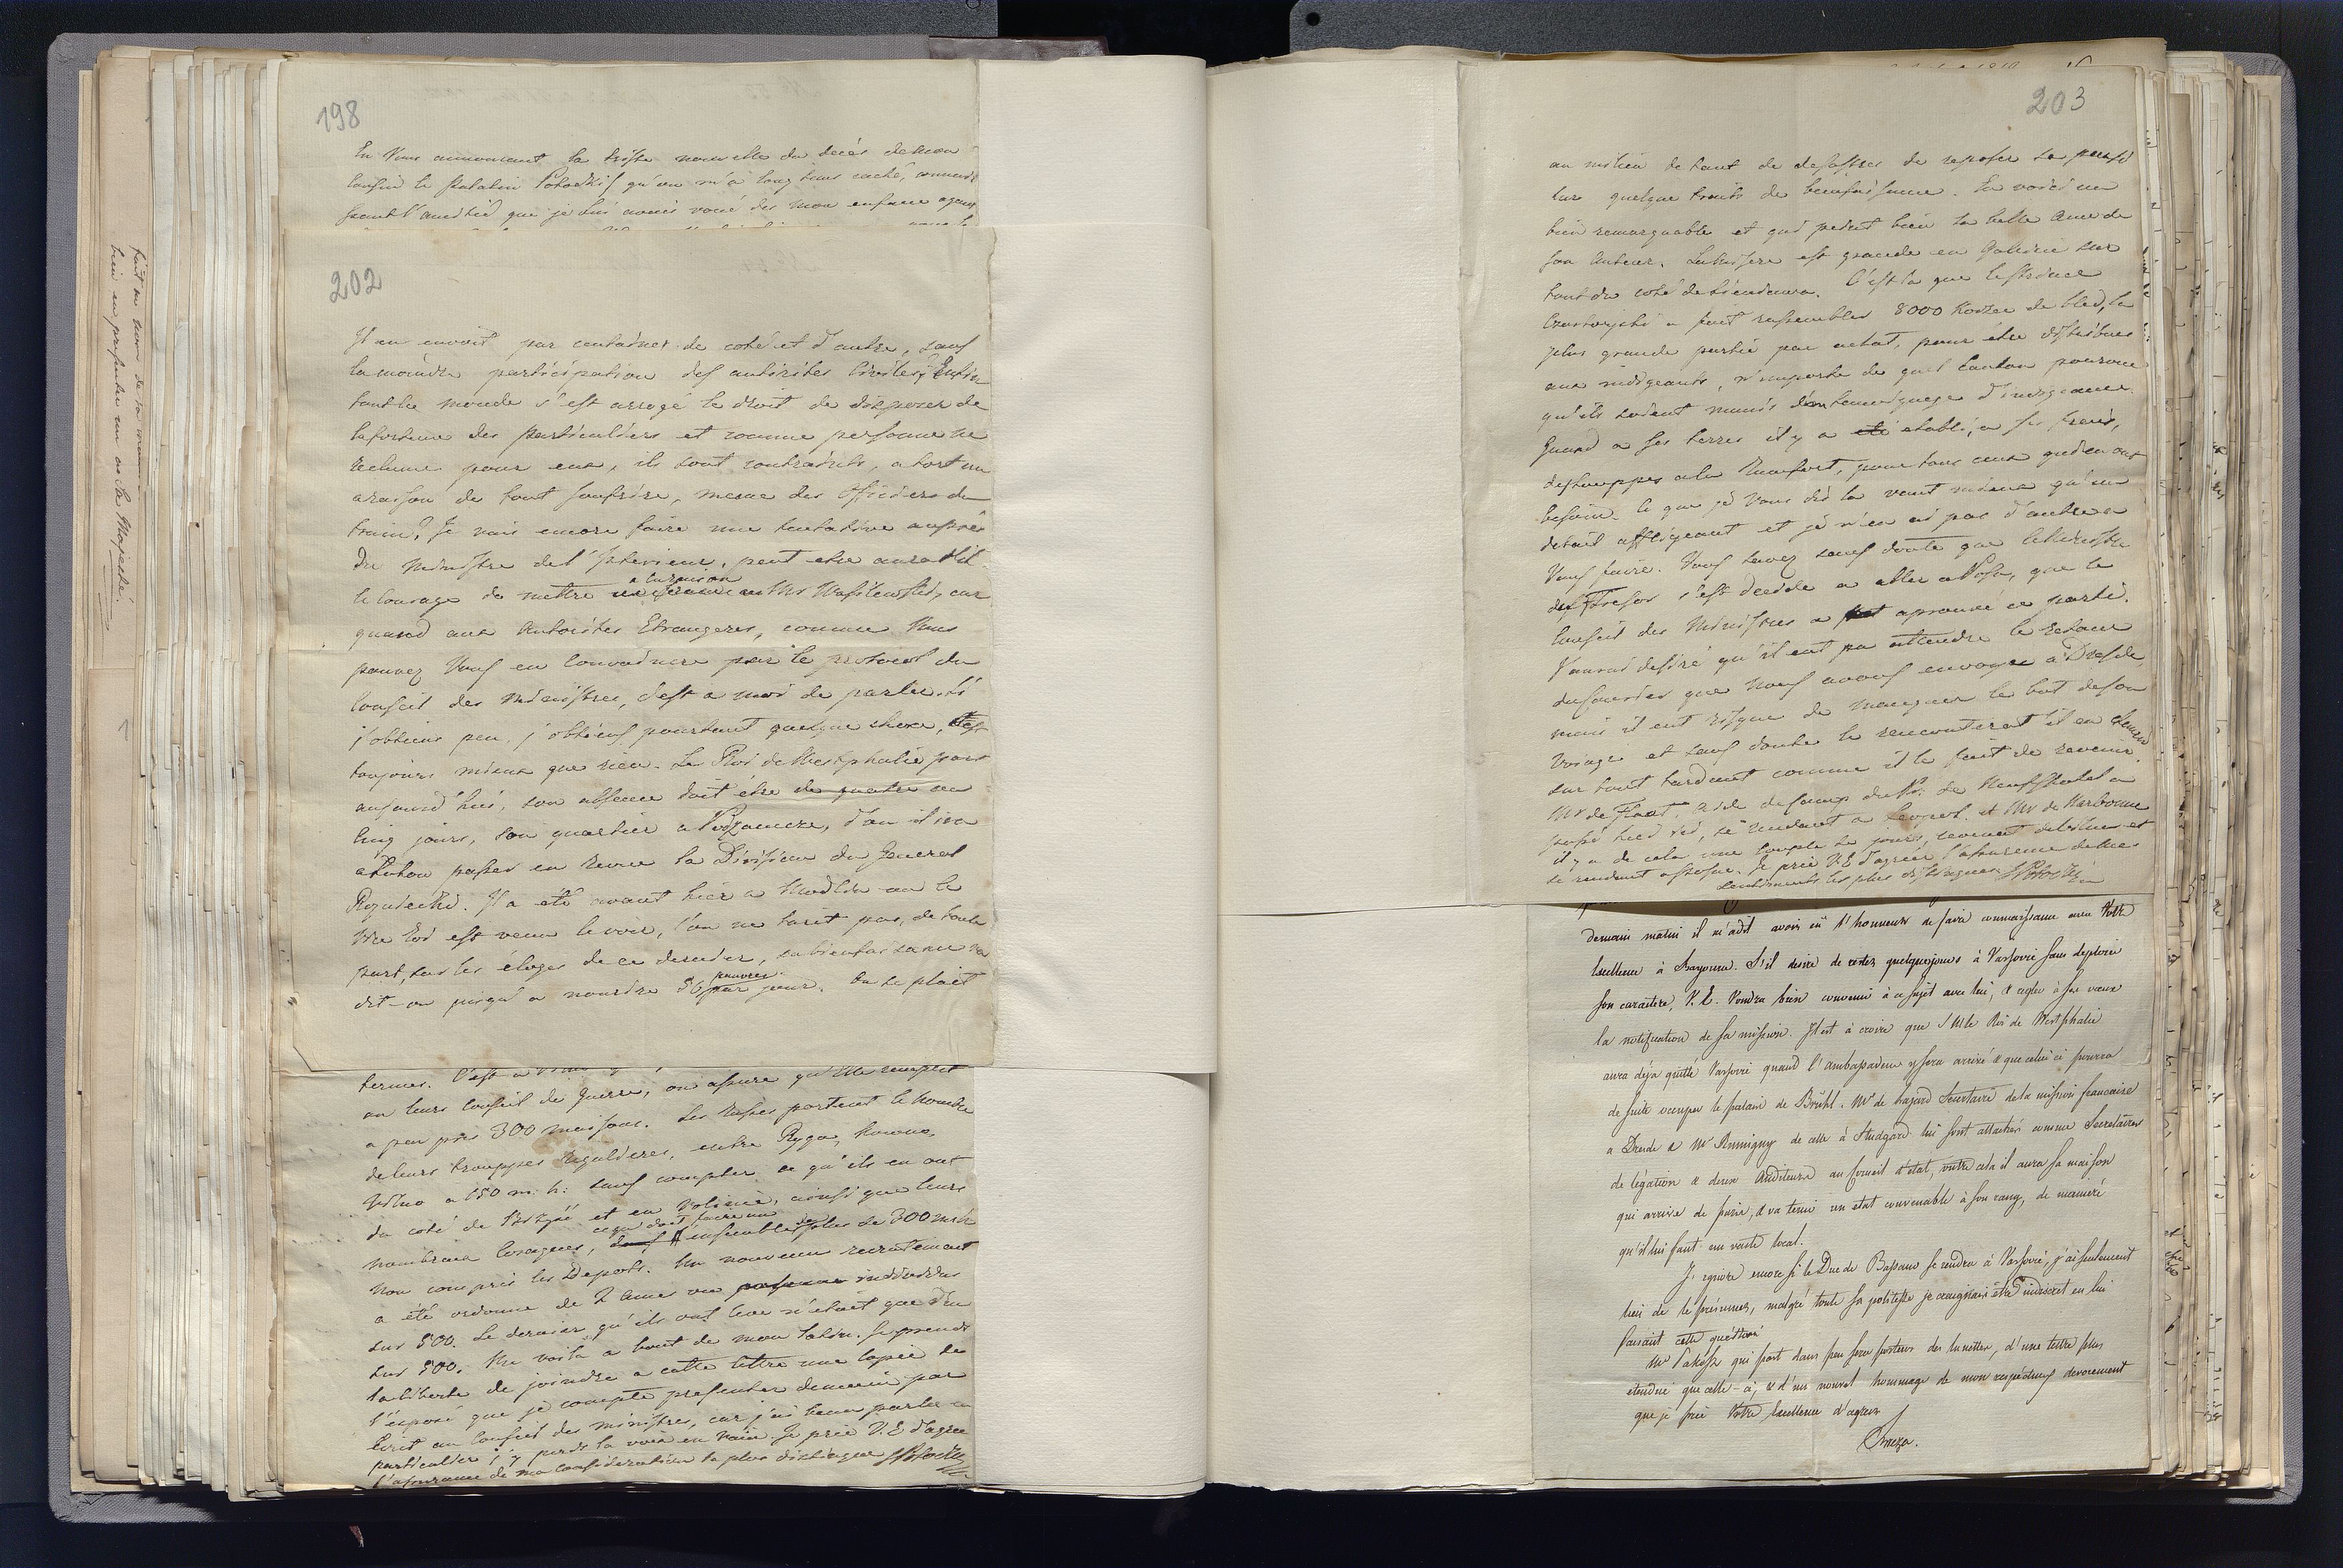 198
En Vous annoncant la triste nouvelle du decès de mon
Cousin le Palatin Potocki qu'on m'a long tems caché, connais
sant l'amitié que je lui avais voué des mon enfance
202
Il en envoit par centaines de coté et d'autre, sans
la moindre participation des autorites Civiles, Enfin
tout le monde s'est arrogé le droit de disposer de
la fortune des particuliers et comme personne ne
reclame pour eux, ils sont contraints, a tort ou
a raison de tout souffrire, meme des Officiers du
train. Je vais encore faire une tentative auprès
du Ministre de l'Interieur, peut etre aura-t-il
le courage de mettre a la raison Mr Wasilewski, car
quand aux Autorites Etrangeres, comme Vous
pouvez Vous en Convaincre par le protocol du
Conseil des Ministres, c'est a moi de parler. Si
j'obtiens peu, j'obtiens pourtant quelque chose, c'est
toujours mieux que rien. Le Roi de Westphalie part
aujourd'hui, son absence doit être de quatre ou
cinq jours, son quartier a , d'ou il ira
passer en revue la Division du General
. Il a été avant hier a Modlin ou le
Vice Roi est venu le voir, l'on ne tarit pas, de toute
part, sur les éloges de ce dernier, sa bienfaisance va
dit-on jusqu'a nourire 50 pauvres par jour. On se plait
termes. C'est a
ou leurs Conseil de Guerre, on assure qu'Elle remplit
a peu près 300 maisons. Les Russes portent le nombre
de leurs trouppes regulieres, entre Ryga, Kowno,
Vilno a 150 m. h: sans compter ce qu'ils en ont
du coté de et en Volinie, ainsi que leurs
nombreux Cosaques, ce qui doit faire un ensemble de plus de 300 m h
non compris les Depots. Un nouveau recrutement
a été ordonné de 2 ames ou individus
sur 500. Le dernier qu'ils ont levé n'etait que d'un
sur 500. Me voila a bout de mon Latin. Je prends
la liberté de joindre a cette lettre une Copie de
l'exposé que je compte presenter demain par
Ecrit au Conseil des ministres, car j'ai beau parler en
particulier, j'y perds la voix en vain. Je prie V. E d'agréer
l'assurance de ma consideration la plus distinguée SPotocki
203
au milieu de tant de desastres de reposer sa pensée
sur quelque traits de bienfaisance. En voici un
bien remarquable et qui peint bien la belle Ame de
son Auteur. La misere est grande en Galicie sur
tout du coté de Sieniawa. C'est la que le Prince
Czartoryski a fait rassembler 8000 Korzec de bled, la
plus grande partie par achat, pour être distribués
aux indigeants, n'importe de quel Canton pourvu
qu'ils soient munis d'un temoignage d'indigeance.
Quand a ses terres il y a été etabli, a ses frais,
des soupes a la Rumfort, pour tous ceux qui en ont
besoin. Ce que je Vous dis la vaut mieux qu'un
detail affligeant et je n'en ai pas d'autre a
Vous faire. Vous savez sans doute que le Ministre
du Tresor s'est decidé a aller a Posen, que le
Conseil des Ministres a aprouvé ce parti.
J'aurai desiré qu'il eut pu attendre le retour
du Courier que nous avons envoyé a Dresde,
mais il eut risqué de manquer le but de son
voiage et sans doute le rencontrerat il en chemin
sur tout tardant comme il le fait de revenir.
Mr de Flaut, Aide de Camp du Pr: de Neufchatel a
passé hier ici, se rendant a Leopol. et Mr de Narbonne
il y a de cela une couple de jours, revenant de Vilna et
se rendant a Posen. Je prie V. E d'agréer l'assurance de mes
sentiments les plus distingués SPotocki
demain matin il m'a dit avoir eû l'honneur de faire connaissance avec Votre
Excellence à Bayonne. S'il desire de rester quelques jours à Varsovie sans deploier
son caractère, V. E. Voudra bien convenir à ce sujet avec lui, & regler à ses vœux
la notification de sa mission. Il est à croire que S M le Roi de Westphalie
aura déja quitté Varsovie quand l'ambassadeur y sera arrivé & que celui ci pourra
de suite occuper le palais de Brühl. Mr de Lazard Secretaire de la mission francaise
à Dresde & Mr Rumigny de celle à Studgard lui sont attachés comme Secretaires
de légation & deux Auditeurs au Conseil d'état, outre cela il aura sa maison
qui arrive de Paris, & va tenir un etat convenable à son rang, de manière
qu'il lui faut un vaste local.
J'ignore encore si le Duc de Bassano se rendra à Varsovie, j'ai seulement
lieu de le présumer, malgré toute sa politesse je craignais d'être indiscret en lui
faisant cette question.
Mr Pakosz qui part dans peu sera porteur des lunettes, d'une lettre plus
étendue que celle-ci, & d'un nouvel hommage de mon respectueux devouement
que je prie Votre Excellence d'agréer
Breza.